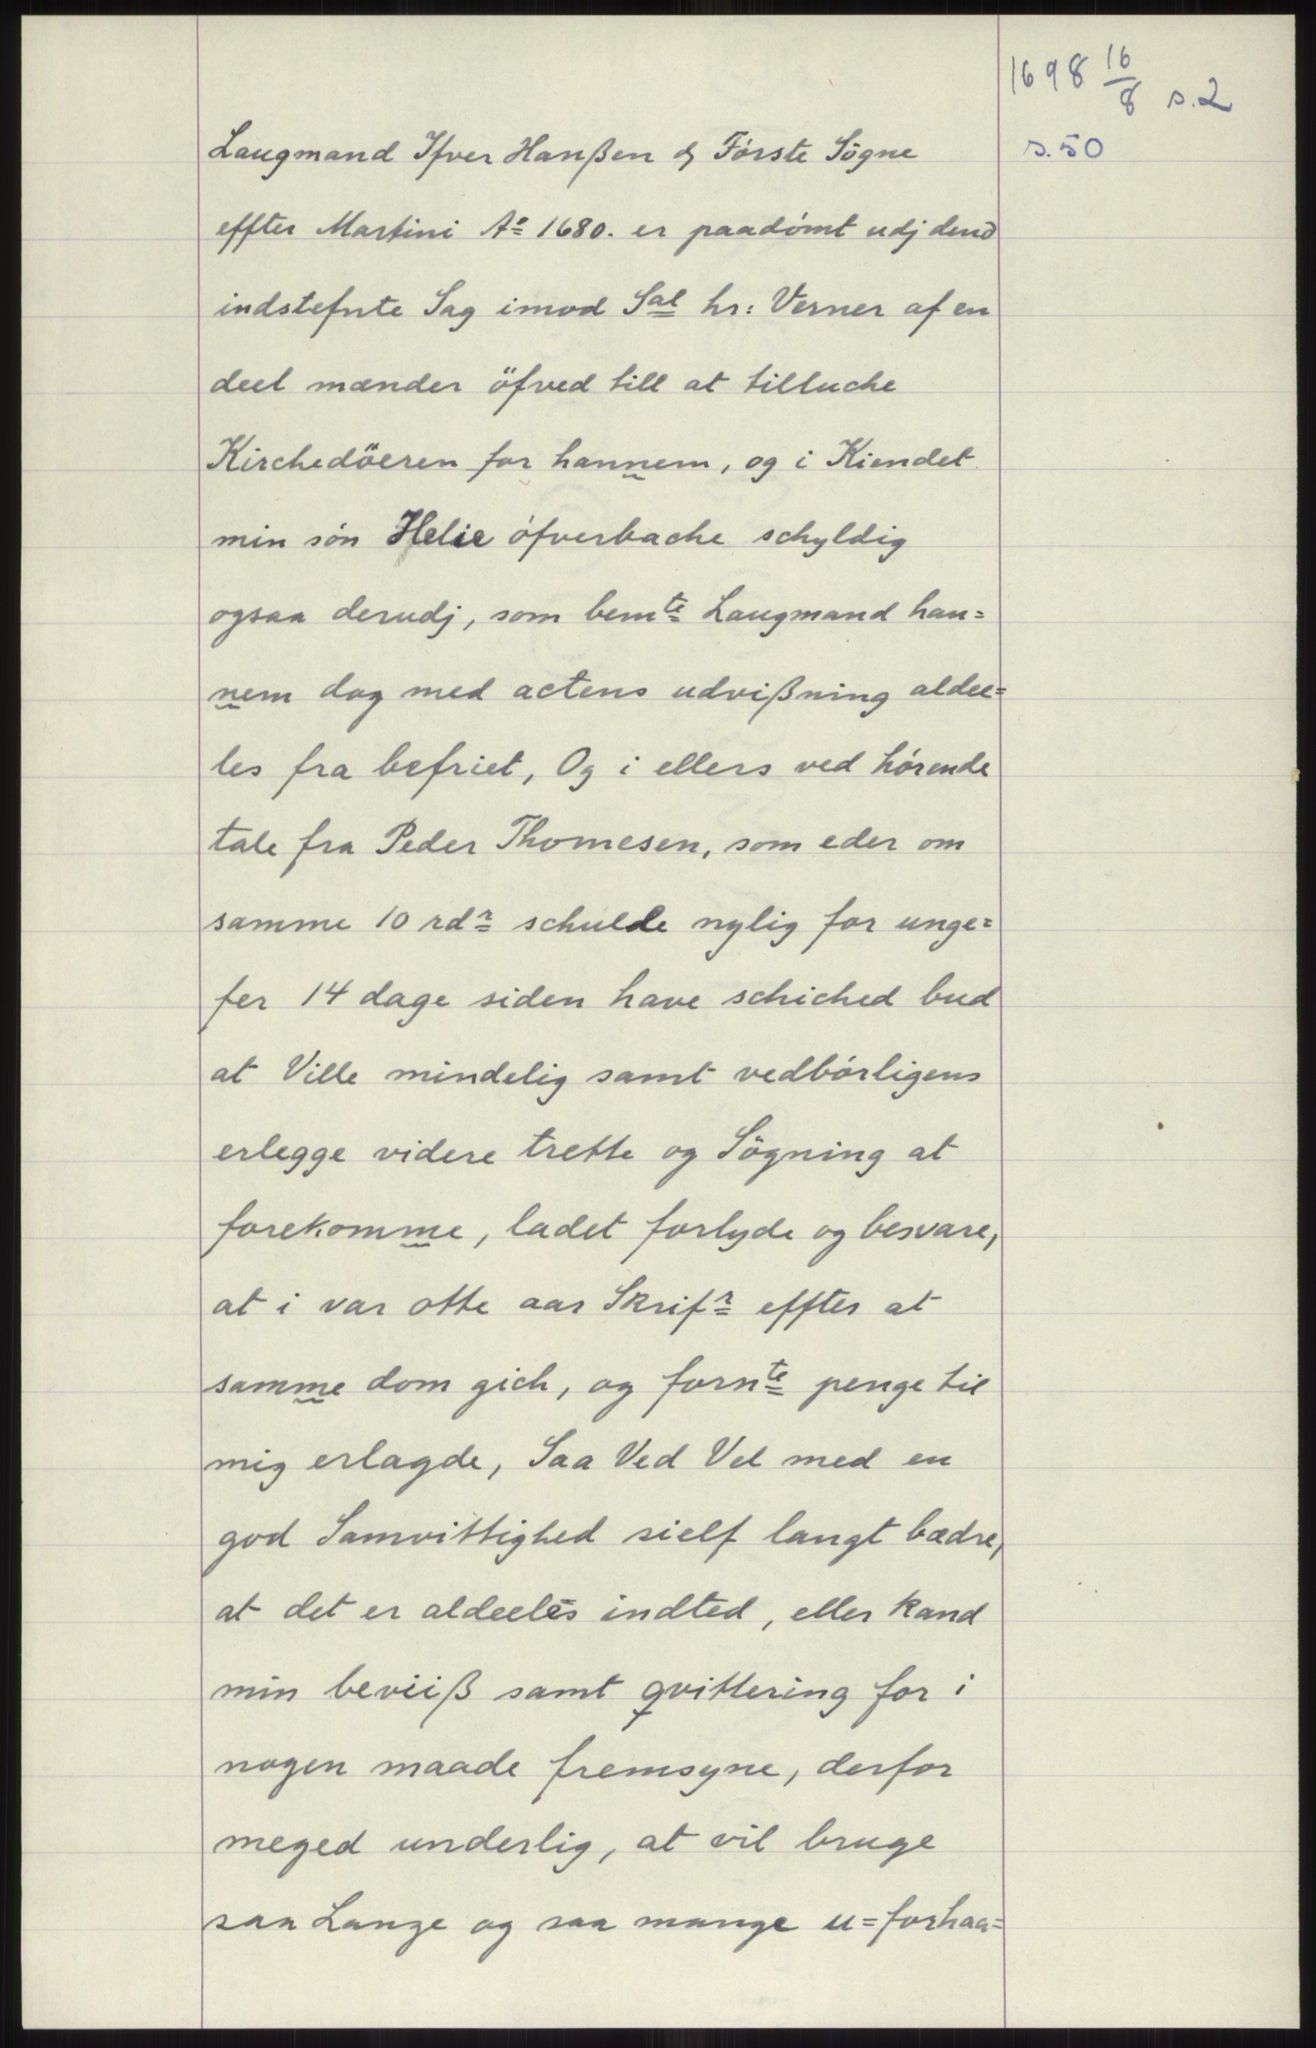 1698 16/8 s.2
s.50
Laugmand Ifver Hanßen & Förste Sögne
effter Martini Aº 1680. er paadómt udj dend
indstefnte Sag imod Sal hr: Verner af en
deel mænder öfved till at tilluche
Kirchedöeren for hannem, og i Kiendet
min són Helie ófverbache schyldig
ogsaa derudj, som bemte Laugmand han=
nem dog med actens udvißning aldee=
les fra befriet, Og i ellers ved hórende
tale fra Peder Thomesen, som eder om
samme 10 rdr schulde nylig for unge=
fer 14 dage siden have schiched bud
at Ville mindelig samt vedbórligens
erlegge videre trette og Sögning at
forekomme, ladet forlyde og besvare,
at i var otte aar Skrifr effter at
samme dom gich, og fornte penge til
mig erlagde, Saa Ved Vel med en
god Samvittighed sielf langt bædre,
at det er aldeeles indted, eller kand
min beviiß samt qvittering for i
nogen maade fremsyne, derfor
meged underlig, at vil bruge
saa Lange og saa mange u=forhaa=